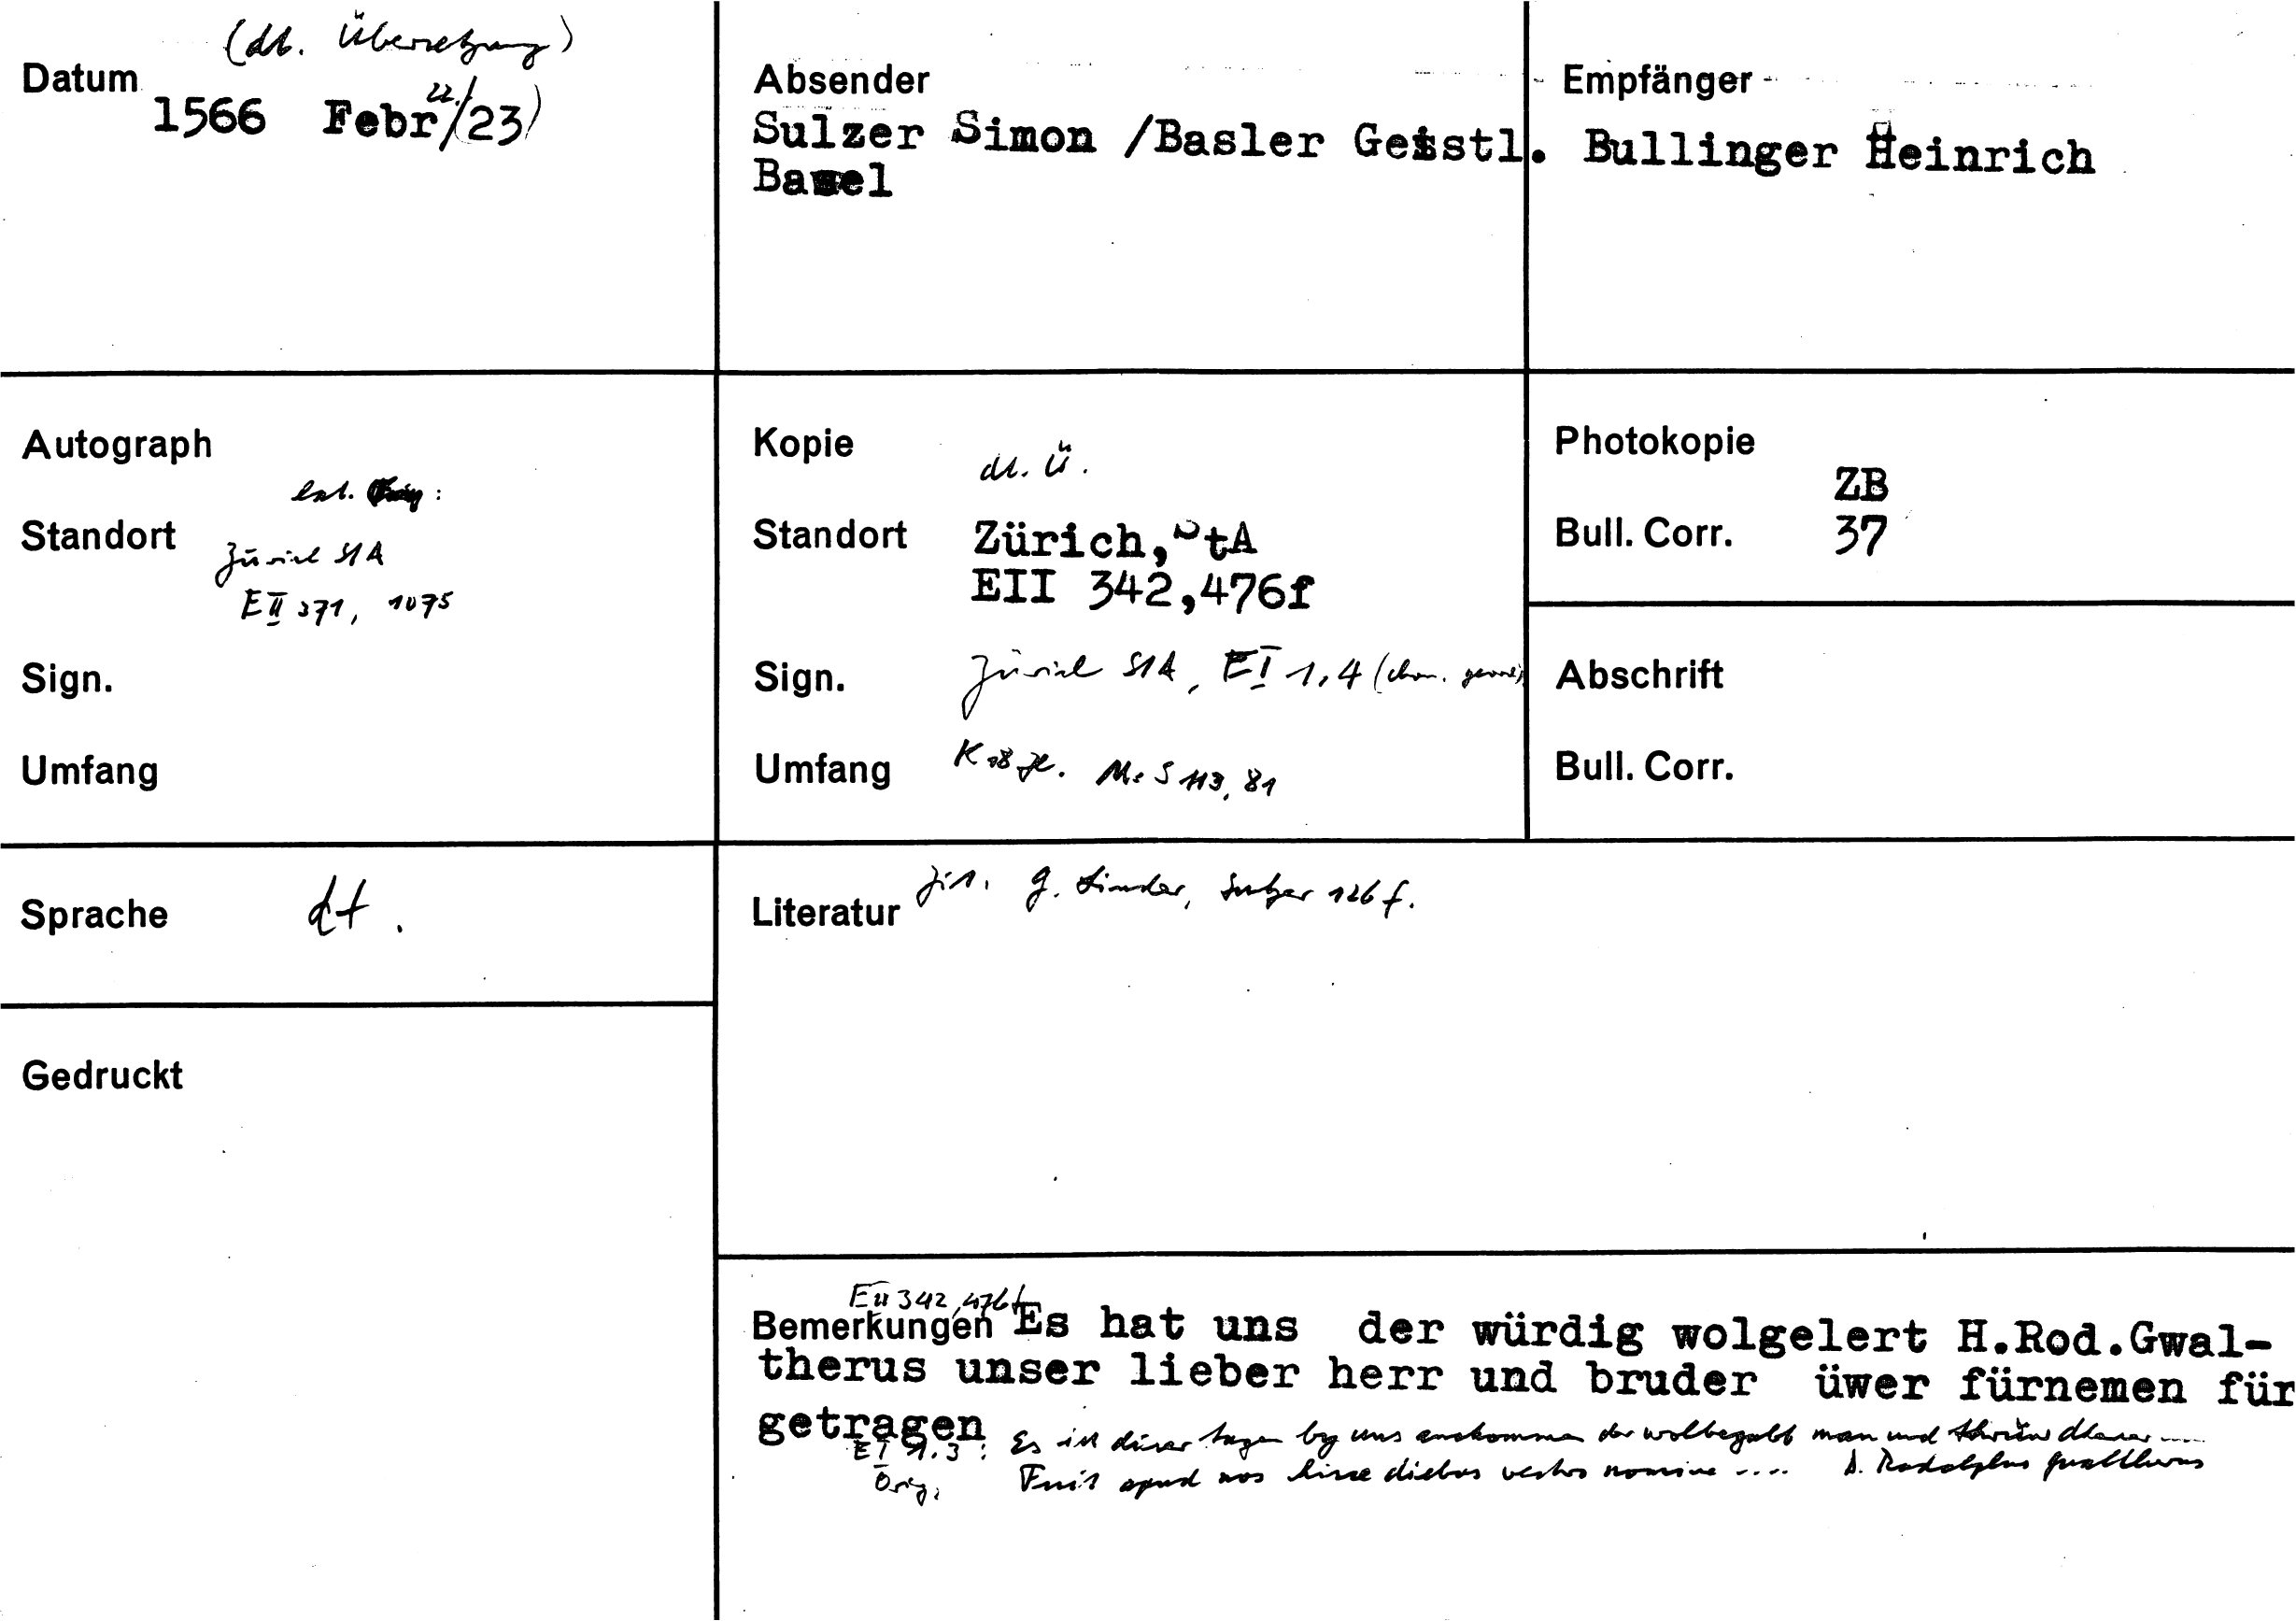 (dt. Übersetzung)
Datum
1566 Febr 22./(23)
Absender
Sulzer Simon /Basler Geistl.
Basel
Empfänger
Bullinger Heinrich
Autograph
lat.
Standort
Zürich StA
EII 371, 1075
Sign.
Umfang
Kopie
dt. Ü.
Standort
Zürich, StA
EII 342,476f
Sign.
Zürich StA, EI 1,4
Umfang
Ms S 113, 81
Photokopie
ZB
Bull. Corr.
37
Abschrift
Bull. Corr.
Sprache
dt.
Literatur
Zit. G. Linder, Sulzer 126 f.
Gedruckt
EII 342,476f
Bemerkungen Es hat uns der würdig wolgelert H.Rod.Gwal-
therus unser lieber herr und bruder üwer fürnemen für
getragen
EI 1.3: Es ist diser tagen by uns ankommen der wolbegabt man und
Orig. Fuit apud nos hisce diebus vestro nomine .... D. Rodolphus Gualtherus